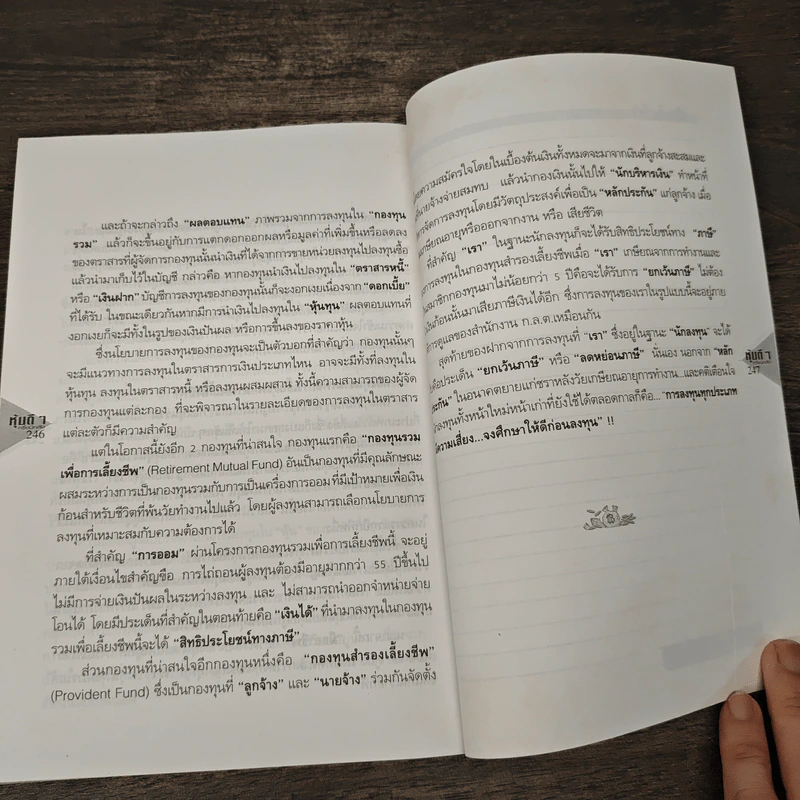 และถ้าจะกล่าวถึง “ผลตอบแทน” ภาพรวมจากการลงทุนใน “กองทุน
รวม” แล้วก็จะขึ้นอยู่กับการแตกดอกออกผลหรือมูลค่าที่เพิ่มขึ้นหรือลดลง
ของตราสารที่ผู้จัดการกองทุนนั้นนำเงินที่ได้จากการขายหน่วยลงทุนไปลงทุนซื้อ
แล้วนำมาเก็บไว้ในบัญชี กล่าวคือ หากกองทุนนำเงินไปลงทุนใน “ตราสารหนี้”
หรือ “เงินฝาก” บัญชีการลงทุนของกองทุนนั้นก็จะงอกเงยเนื่องจาก “ดอกเบี้ย”
ที่ได้รับ ในขณะเดียวกันหากมีการนำเงินไปลงทุนใน “หุ้นทุน” ผลตอบแทนที่
งอกเงยก็จะมีทั้งในรูปของเงินปันผล หรือการขึ้นลงของราคาหุ้น
ซึ่งนโยบายการลงทุนของกองทุนจะเป็นตัวบอกที่สำคัญว่า กองทุนนั้นๆ
จะมีแนวทางการลงทุนในตราสารการเงินประเภทไหน อาจจะมีทั้งที่ลงทุนใน
หุ้นทุน ลงทุนในตราสารหนี้ หรือลงทุนผสมผสาน ทั้งนี้ความสามารถของผู้จัด
การกองทุนแต่ละกอง ที่จะพิจารณาในรายละเอียดของการลงทุนในตราสาร
แต่ละตัวก็มีความสำคัญ
แต่ในโอกาสนี้ยังอีก 2 กองทุนที่น่าสนใจ กองทุนแรกคือ “กองทุนรวม
เพื่อการเลี้ยงชีพ” (Retirement Mutual Fund) อันเป็นกองทุนที่มีคุณลักษณะ
ผสมระหว่างการเป็นกองทุนรวมกับการเป็นเครื่องการออมที่มีเป้าหมายเพื่อเงิน
ก้อนสำหรับชีวิตที่พ้นวัยทำงานไปแล้ว โดยผู้ลงทุนสามารถเลือกนโยบายการ
ลงทุนที่เหมาะสมกับความต้องการได้
ที่สำคัญ “การออม” ผ่านโครงการกองทุนรวมเพื่อการเลี้ยงชีพนี้ จะอยู่
ภายใต้เงื่อนไขสำคัญขือ การไถ่ถอนผู้ลงทุนต้องมีอายุมากกว่า 55 ปีขึ้นไป
ไม่มีการจ่ายเงินปันผลในระหว่างลงทุน และ ไม่สามารถนำออกจำหน่ายจ่าย
โอนได้ โดยมีประเด็นที่สำคัญในตอนท้ายคือ “เงินได้” ที่นำมาลงทุนในกองทุน
รวมเพื่อเลี้ยงชีพนี้จะได้ “สิทธิประโยชน์ทางภาษี”
ส่วนกองทุนที่น่าสนใจอีกกองทุนหนึ่งคือ “กองทุนสำรองเลี้ยงชีพ”
(Provident Fund) ซึ่งเป็นกองทุนที่ “ลูกจ้าง” และ “นายจ้าง” ร่วมกันจัดตั้ง
หุ้นดี ๆ
246
ความสมัครใจโดยในเบื้องต้นเงินทั้งหมดจะมาจากเงินที่ลูกจ้างสะสมและ
นายจ้างจ่ายสมทบ แล้วนำกองเงินนั้นไปให้ “นักบริหารเงิน” ทำหน้าที่
จัดการลงทุนโดยมีวัตถุประสงค์เพื่อเป็น “หลักประกัน” แก่ลูกจ้าง เมื่อ
เกษียณอายุหรือออกจากงาน หรือ เสียชีวิต
ที่สำคัญ “เรา” ในฐานะนักลงทุนก็จะได้รับสิทธิประโยชน์ทาง “ภาษี”
การลงทุนในกองทุนสำรองเลี้ยงชีพเมื่อ “เรา” เกษียณจากการทำงานและ
สมาชิกกองทุนมาไม่น้อยกว่า 5 ปีคือจะได้รับการ “ยกเว้นภาษี” ไม่ต้อง
เงินก้อนนั้นมาเสียภาษีเงินได้อีก ซึ่งการลงทุนของเราในรูปแบบนี้จะอยู่ภาย
การดูแลของสำนักงาน ก.ล.ต.เหมือนกัน
สุดท้ายของฝากจากการลงทุนที่ “เรา” ซึ่งอยู่ในฐานะ “นักลงทุน” จะได้
คือประเด็น “ยกเว้นภาษี” หรือ “ลดหย่อนภาษี” นั่นเอง นอกจาก “หลัก
ประกัน” ในอนาคตยายแก่ชราหลังวัยเกษียณอายุการทำงาน...และคติเตือนใจ
ลงทุนทั้งหน้าใหม่หน้าเก่าที่ยังใช้ได้ตลอดกาลก็คือ...“การลงทุนทุกประเภท
ความเสี่ยง...จงศึกษาให้ดีก่อนลงทุน” !!
หุ้นดี ๆ
247